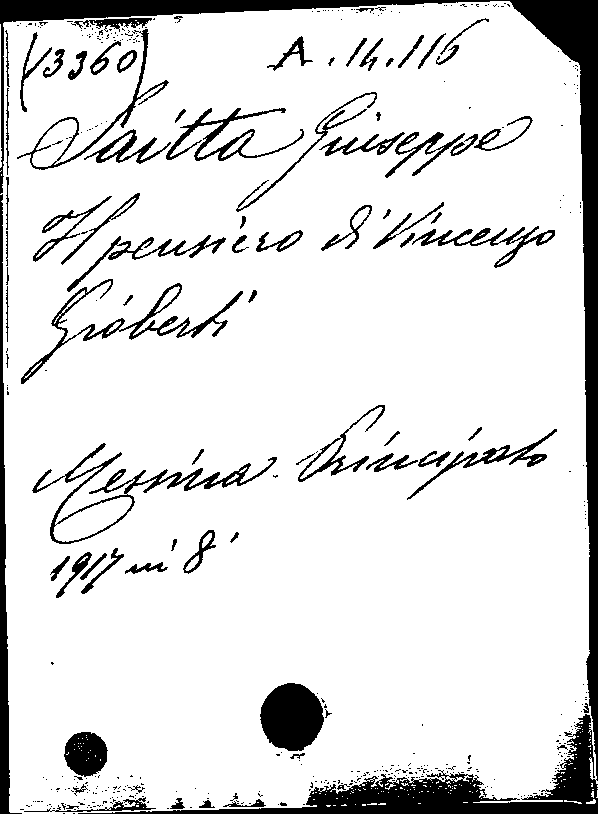 (43360) A.14.116
Saitta Giuseppe
Il pensiero di Vincenzo
Gioberti
Messina. Principato
1917 in 8°